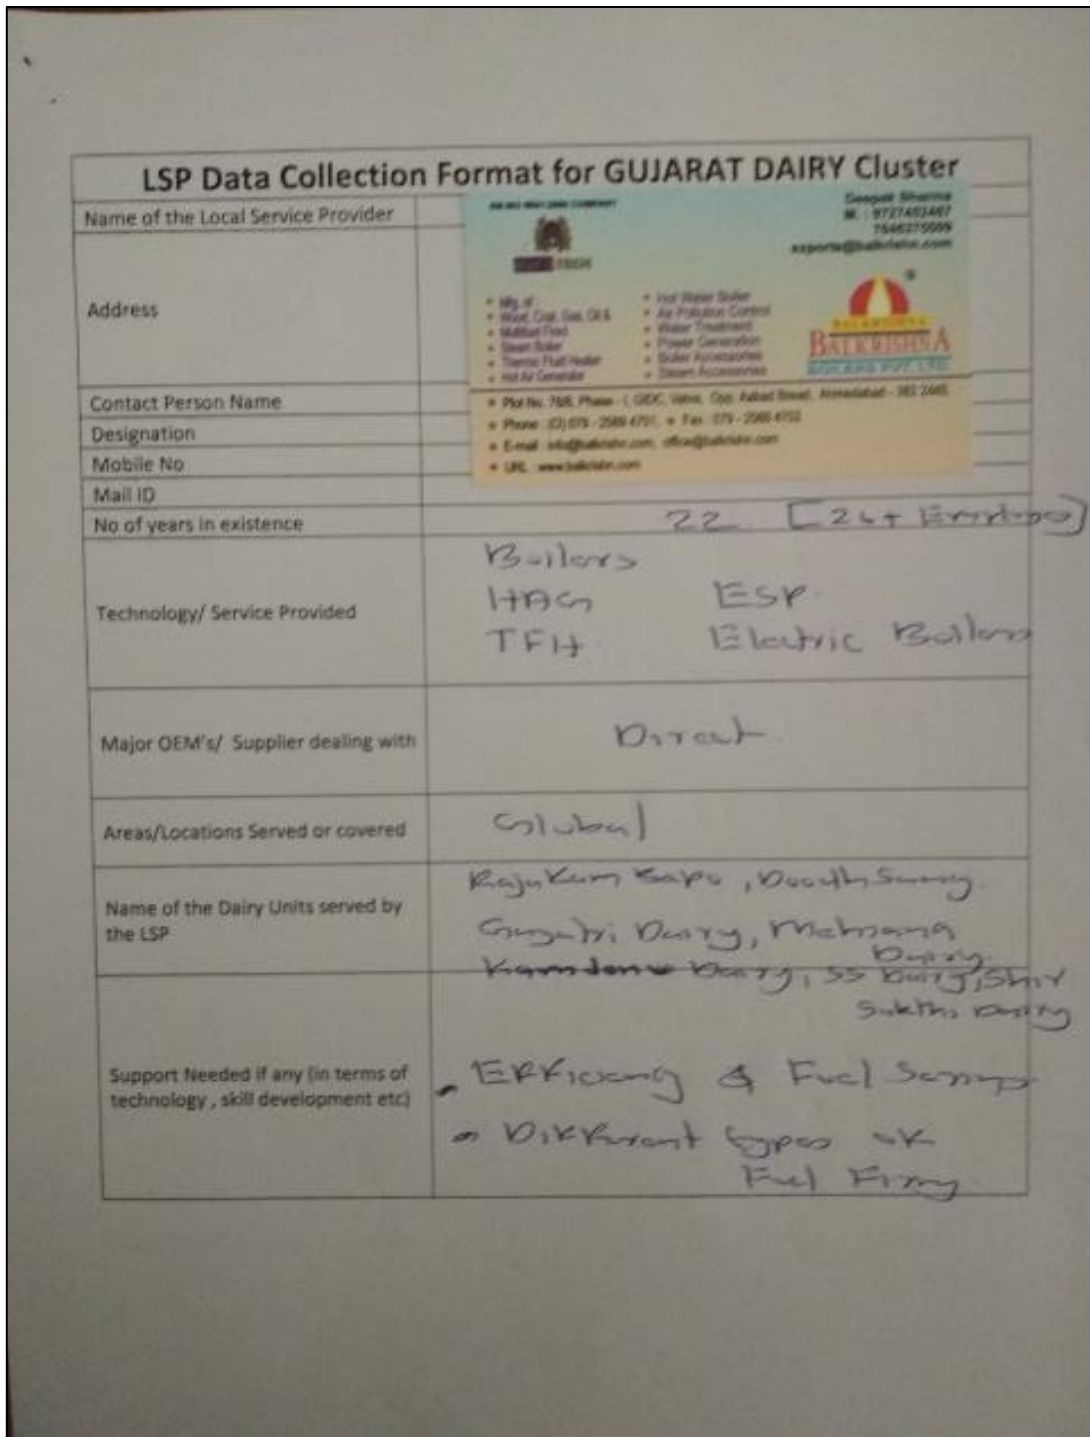 LSP Data Collection Format for GUJARAT DAIRY Cluster
Name of the Local Service Provider
AN ISO 9001:2008 COMPANY
Deepak Sharma
M. : 9727453467
exports@balkrishn.com
Address
• Mfg. of
• Wood, Coal, Gas, Oil &
• Multifuel Fired
• Steam Boiler
• Thermic Fluid Heater
• Hot Air Generator
• Hot Water Boiler
• Air Pollution Control
• Water Treatment
• Power Generation
• Boiler Accessories
• Steam Accessories
®
BALKRISHNA
BOILERS PVT. LTD.
Contact Person Name
• Plot No. Phase - I, GIDC, Vatva, Opp. Ahmedabad - 382
Designation
• Phone : (O) 079 - 2589 4701, • Fax : 079 - 2589 4702
Mobile No
• E-mail : info@balkrishn.com, office@balkrishn.com
• URL : www.balkrishn.com
Mail ID
No of years in existence
22 [26+
Technology/ Service Provided
Boilers
HAG ESP.
TFH. Electric Boilers
Major OEM's/ Supplier dealing with
Direct
Areas/Locations Served or covered
Global
Name of the Dairy Units served by
the LSP
Doodh
Dairy, Mehsana
Dairy
Dairy, SS Dairy, Shiv
Dairy
Support Needed if any (in terms of
technology , skill development etc)
Efficiency & Fuel Savings
Different types of
Fuel Firing